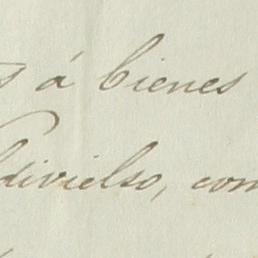 s á bienes
ldivielso, com